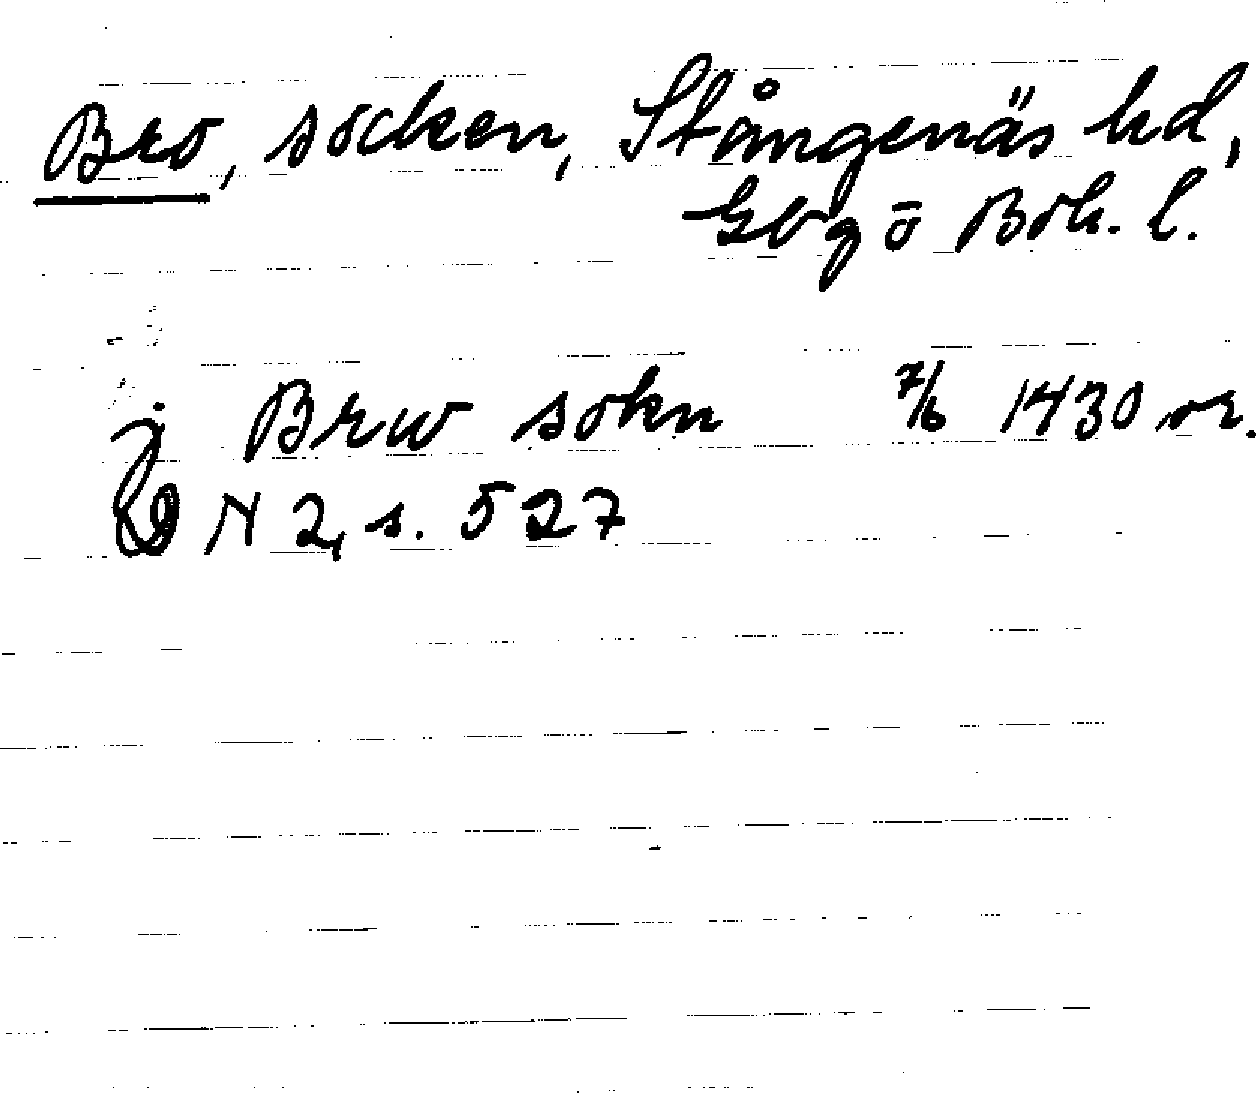 Bro, socken, Stångenäs hd,
Gbg o Boh. l.
j Brw sokn 7/6 1430 or.
DN 2, s. 527